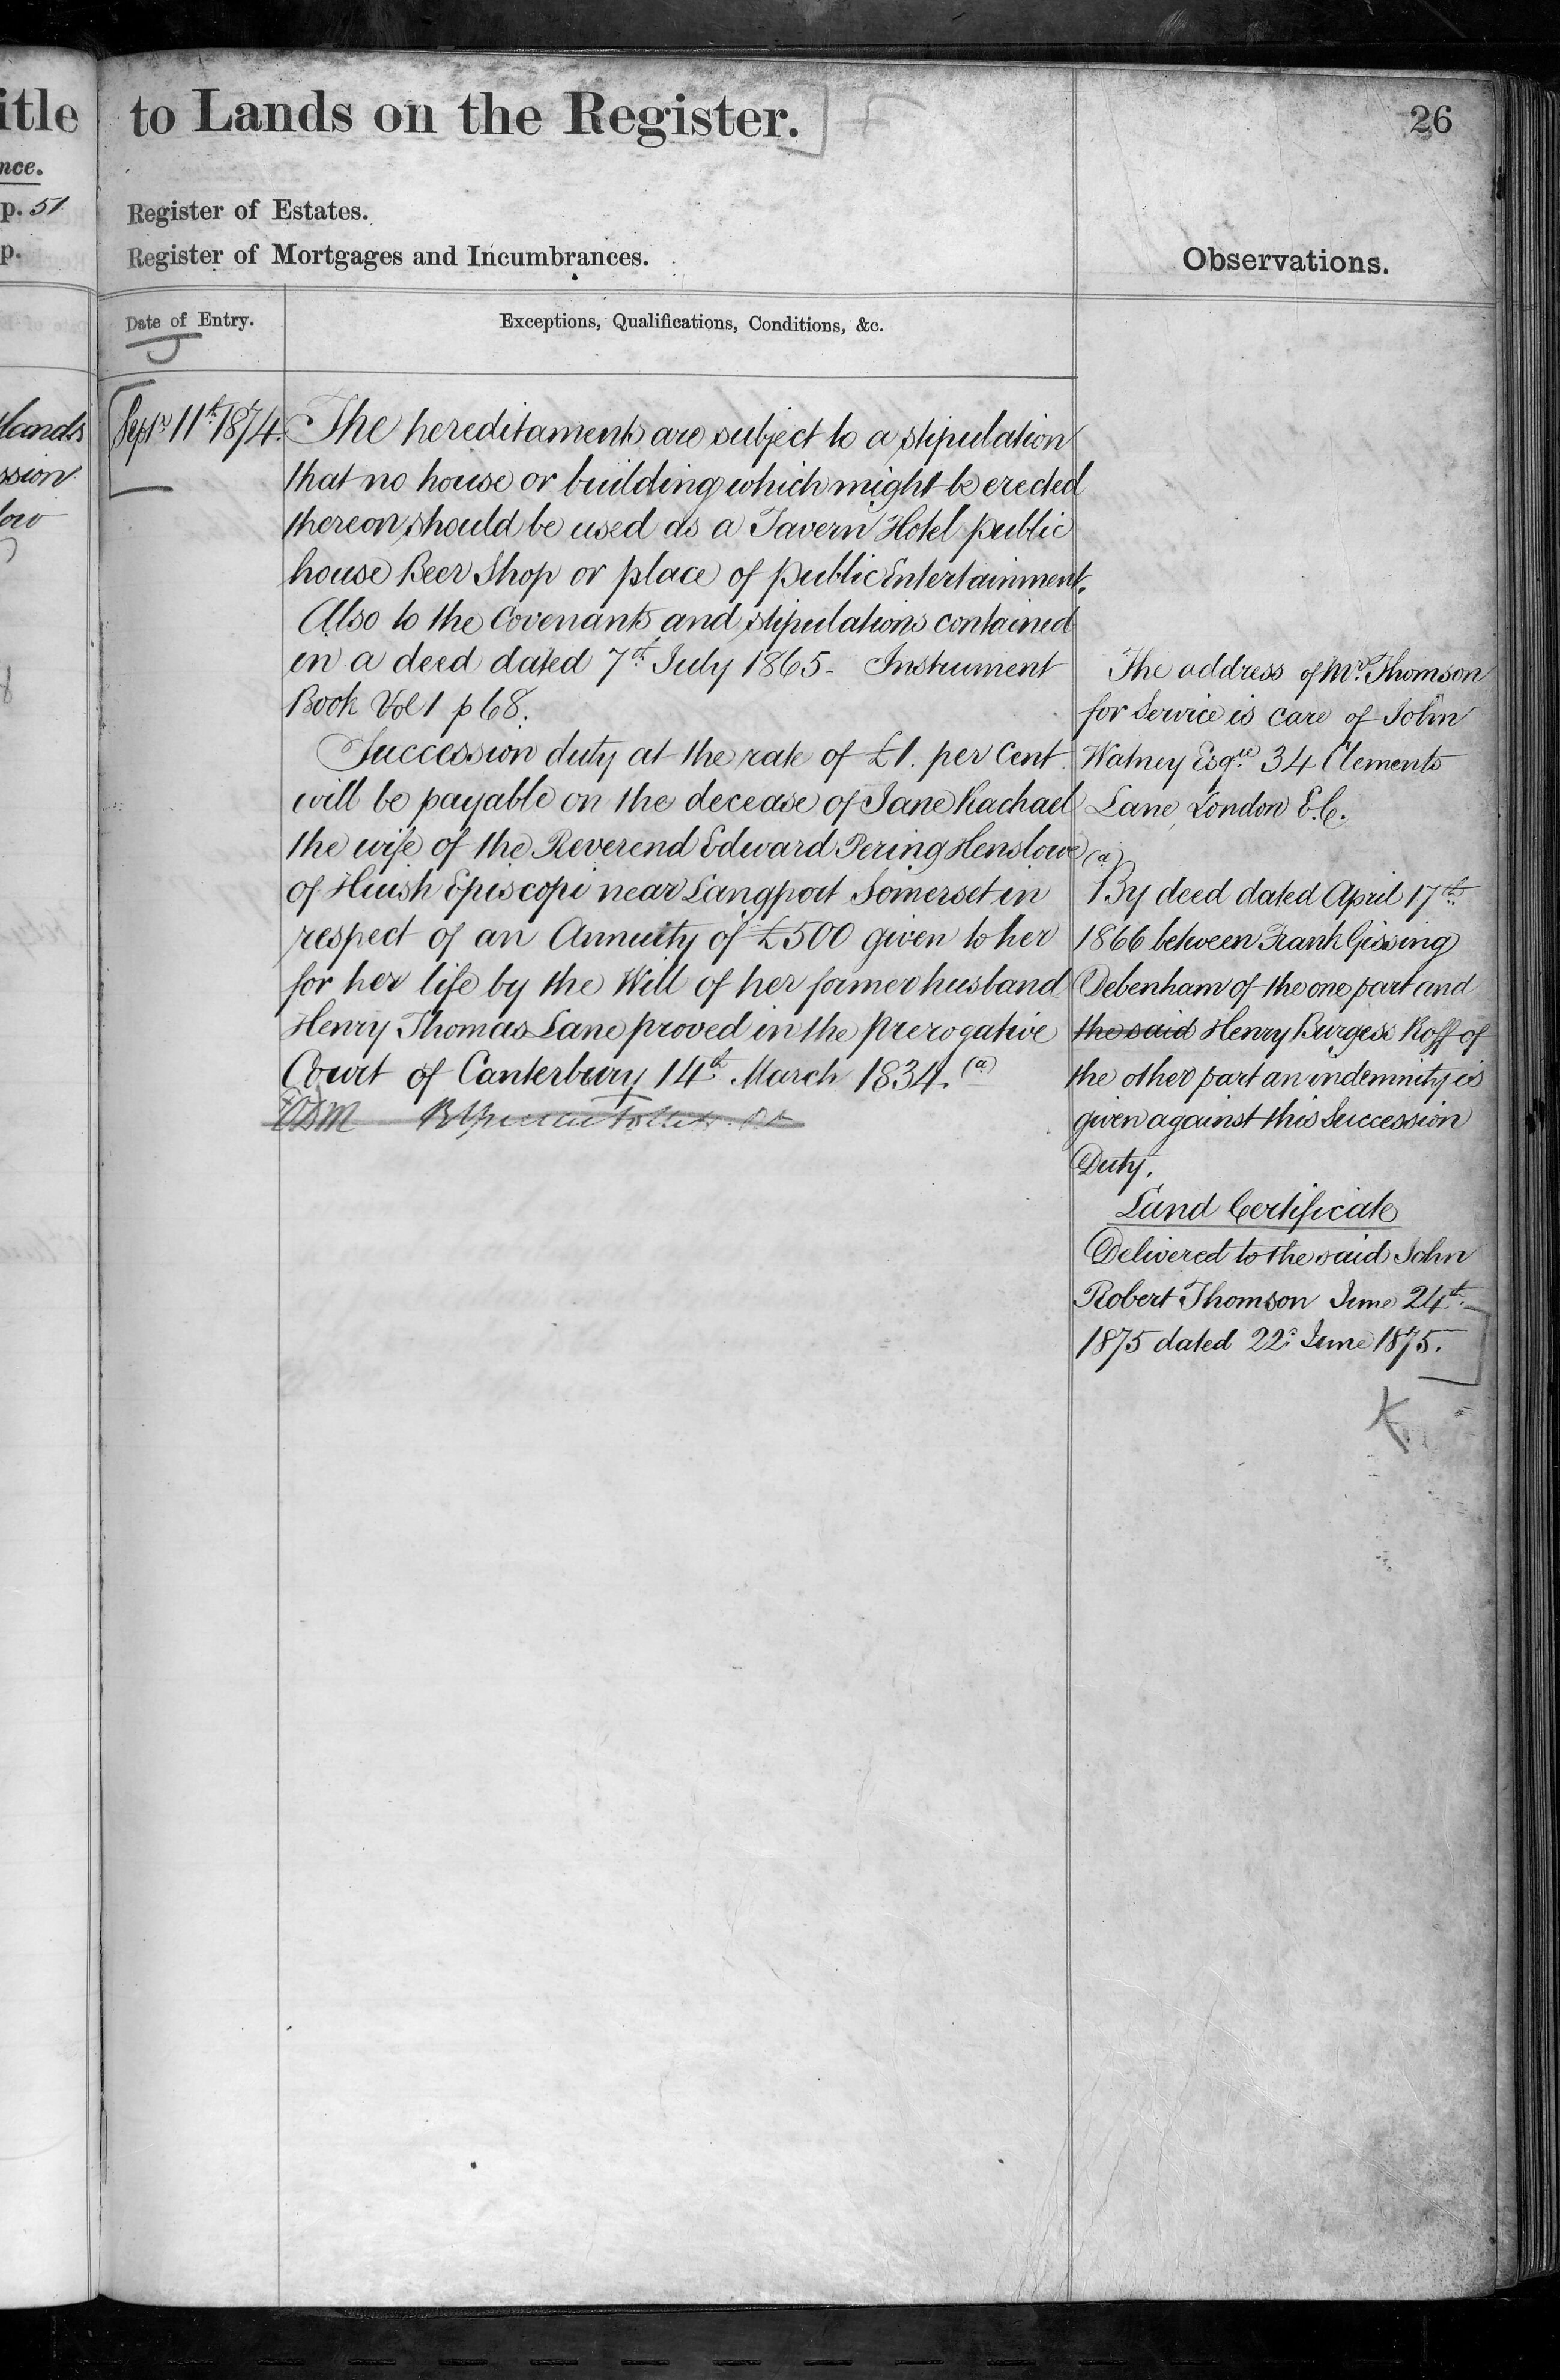 itle
nce.
p. 51
p.
lands
ssion
low
to Lands on the Register.
26
Register of Estates.
Register of Mortgages and Incumbrances.
Observations.
Date of Entry.
Exceptions, Qualifications, Conditions, &c.
Septr 11th 1874.
The hereditaments are subject to a stipulation
that no house or building which might be erected
thereon should be used as a Tavern Hotel public
house Beer Shop or place of public Entertainment.
Also to the Covenants and stipulations contained
in a deed dated 7th July 1865 - Instrument
Book Vol 1 p 68.
Succession duty at the rate of £1. per Cent
will be payable on the decease of Jane Rachael
the wife of the Reverend Edward Pering Henslowe
of Huish Episcopi near Langport Somerset in
respect of an Annuity of £500 given to her
for her life by the Will of her former husband
Henry Thomas Lane proved in the prerogative
Court of Canterbury 14th March 1834. (a)
The address of Mr. Thomson
for Service is care of John
Watney Esqre 34 Clements
Lane, London E.C.
(a)
By deed dated April 17th
1866 between Frank Gissing
Debenham of the one part and
the said Henry Burgess Roff of
the other part an indemnity is
given against this Succession
Duty.
Land Certificate
Delivered to the said John
Robert Thomson June 24th
1875 dated 22d June 1875.
K